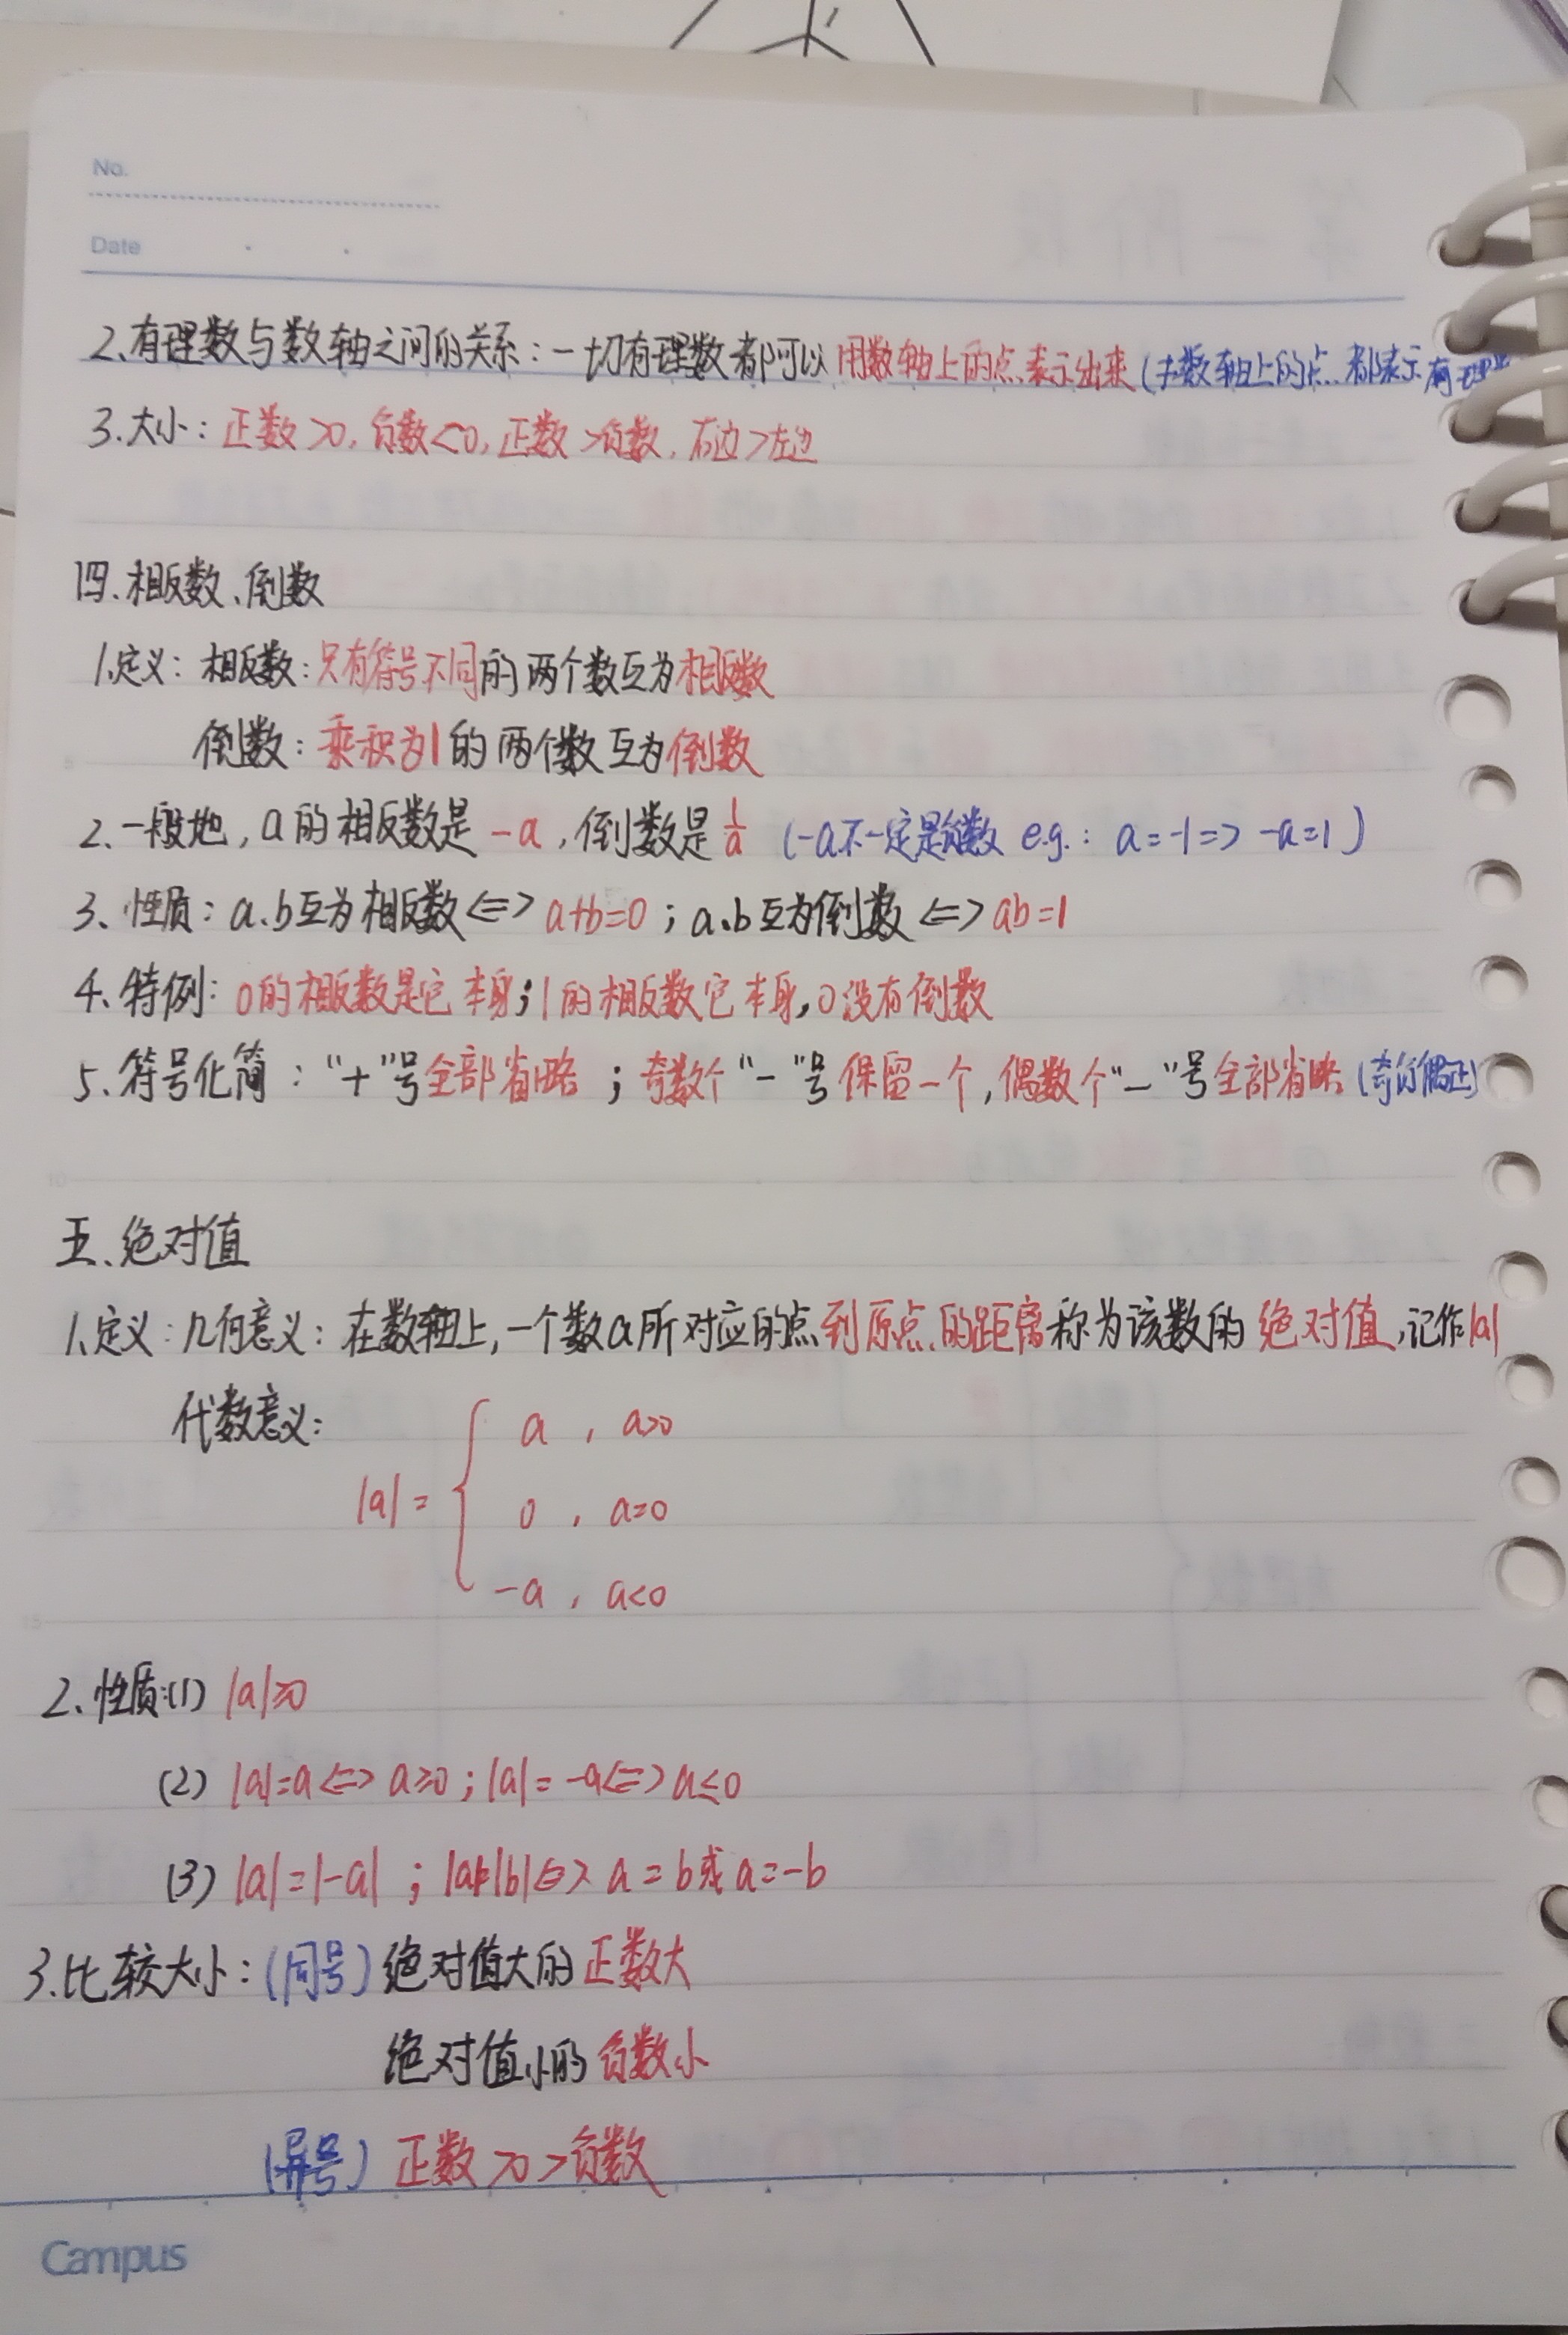 No.
Date
2、有理数与数轴之间的关系：一切有理数都可以用数轴上的点表示出来(数轴上的点都表示有理
3.大小：正数>0，负数<0，正数>负数，右边>左边
四.相反数、倒数
1.定义：相反数：只有符号不同的两个数互为相反数
倒数：乘积为1的两个数互为倒数
2.一般地，a的相反数是-a，倒数是1/a (-a不一定是负数 e.g.：a=-1=> -a=1)
3、性质：a、b互为相反数<=>a+b=0；a、b互为倒数<=>ab=1
4、特例：0的相反数是它本身；1的相反数它本身，0没有倒数
5、符号化简："+"号全部省略；奇数个"-"号保留一个，偶数个"-"号全部省略(奇负偶正)
五、绝对值
1、定义：几何意义：在数轴上，一个数a所对应的点到原点的距离称为该数的绝对值，记作|a|
代数意义：
a，a>0
|a|= { 0，a=0
-a，a<0
2、性质：(1) |a|≥0
(2) |a|=a<=>a≥0；|a|=-a<=>a≤0
(3) |a|=|-a|；|a|=|b|<=>a=b或a=-b
3.比较大小：(同号)绝对值大的正数大
绝对值小的负数小
(异号) 正数>0>负数
Campus